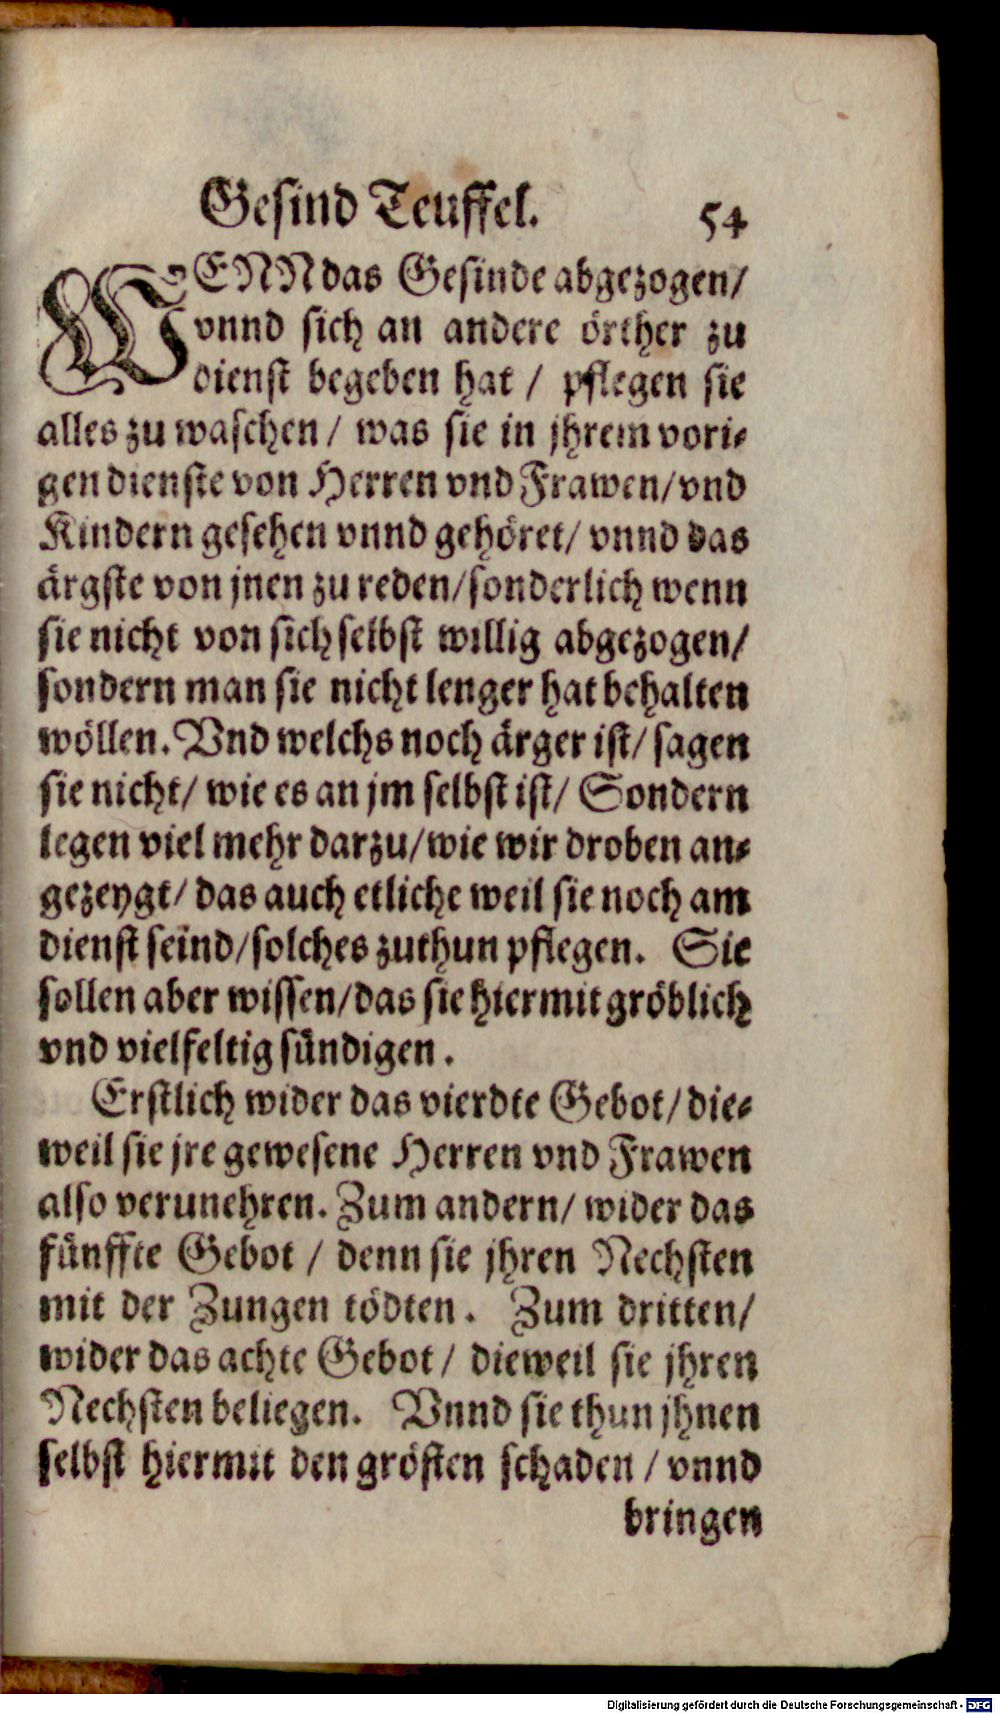 Gesind Teuffel. 54
WENN das Gesinde abgezogen/
vnnd sich an andere örther zu
dienst begeben hat / pflegen sie
alles zu waschen / was sie in jhrem vori-
gen dienste von Herren vnd Frawen/vnd
Kindern gesehen vnnd gehöret/ vnnd das
ärgste von jnen zu reden/sonderlich wenn
sie nicht von sich selbst willig abgezogen/
sondern man sie nicht lenger hat behalten
wöllen. Vnd welchs noch ärger ist/ sagen
sie nicht/ wie es an jm selbst ist/ Sondern
legen viel mehr darzu/wie wir droben an-
gezeygt/ das auch etliche weil sie noch am
dienst seind/solches zuthun pflegen. Sie
sollen aber wissen/das sie hiermit gröblich
vnd vielfeltig sündigen.
Erstlich wider das vierdte Gebot/ die-
weil sie jre gewesene Herren vnd Frawen
also verunehren. Zum andern/ wider das
fünffte Gebot / denn sie jhren Nechsten
mit der Zungen tödten. Zum dritten/
wider das achte Gebot/ dieweil sie jhren
Nechsten beliegen. Vnnd sie thun jhnen
selbst hiermit den grösten schaden / vnnd
bringen
Digitalisierung gefördert durch die Deutsche Forschungsgemeinschaft - DFG